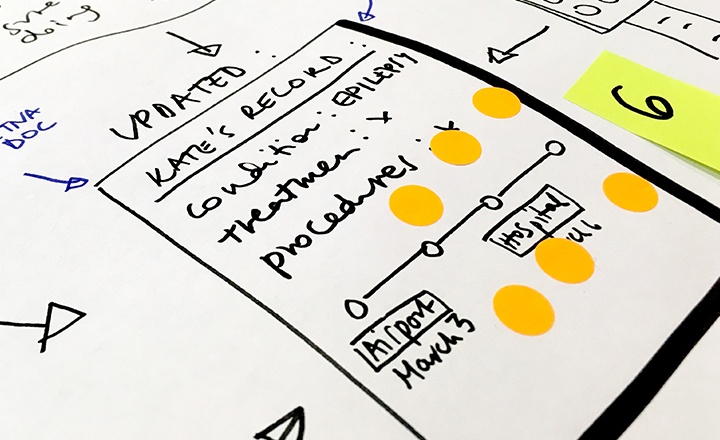 doing
UPDATED :
KATE'S RECORD :
condition : EPILEPSY
treatment : x
procedures : x
6
Hospital
Airport
March 3
DOC